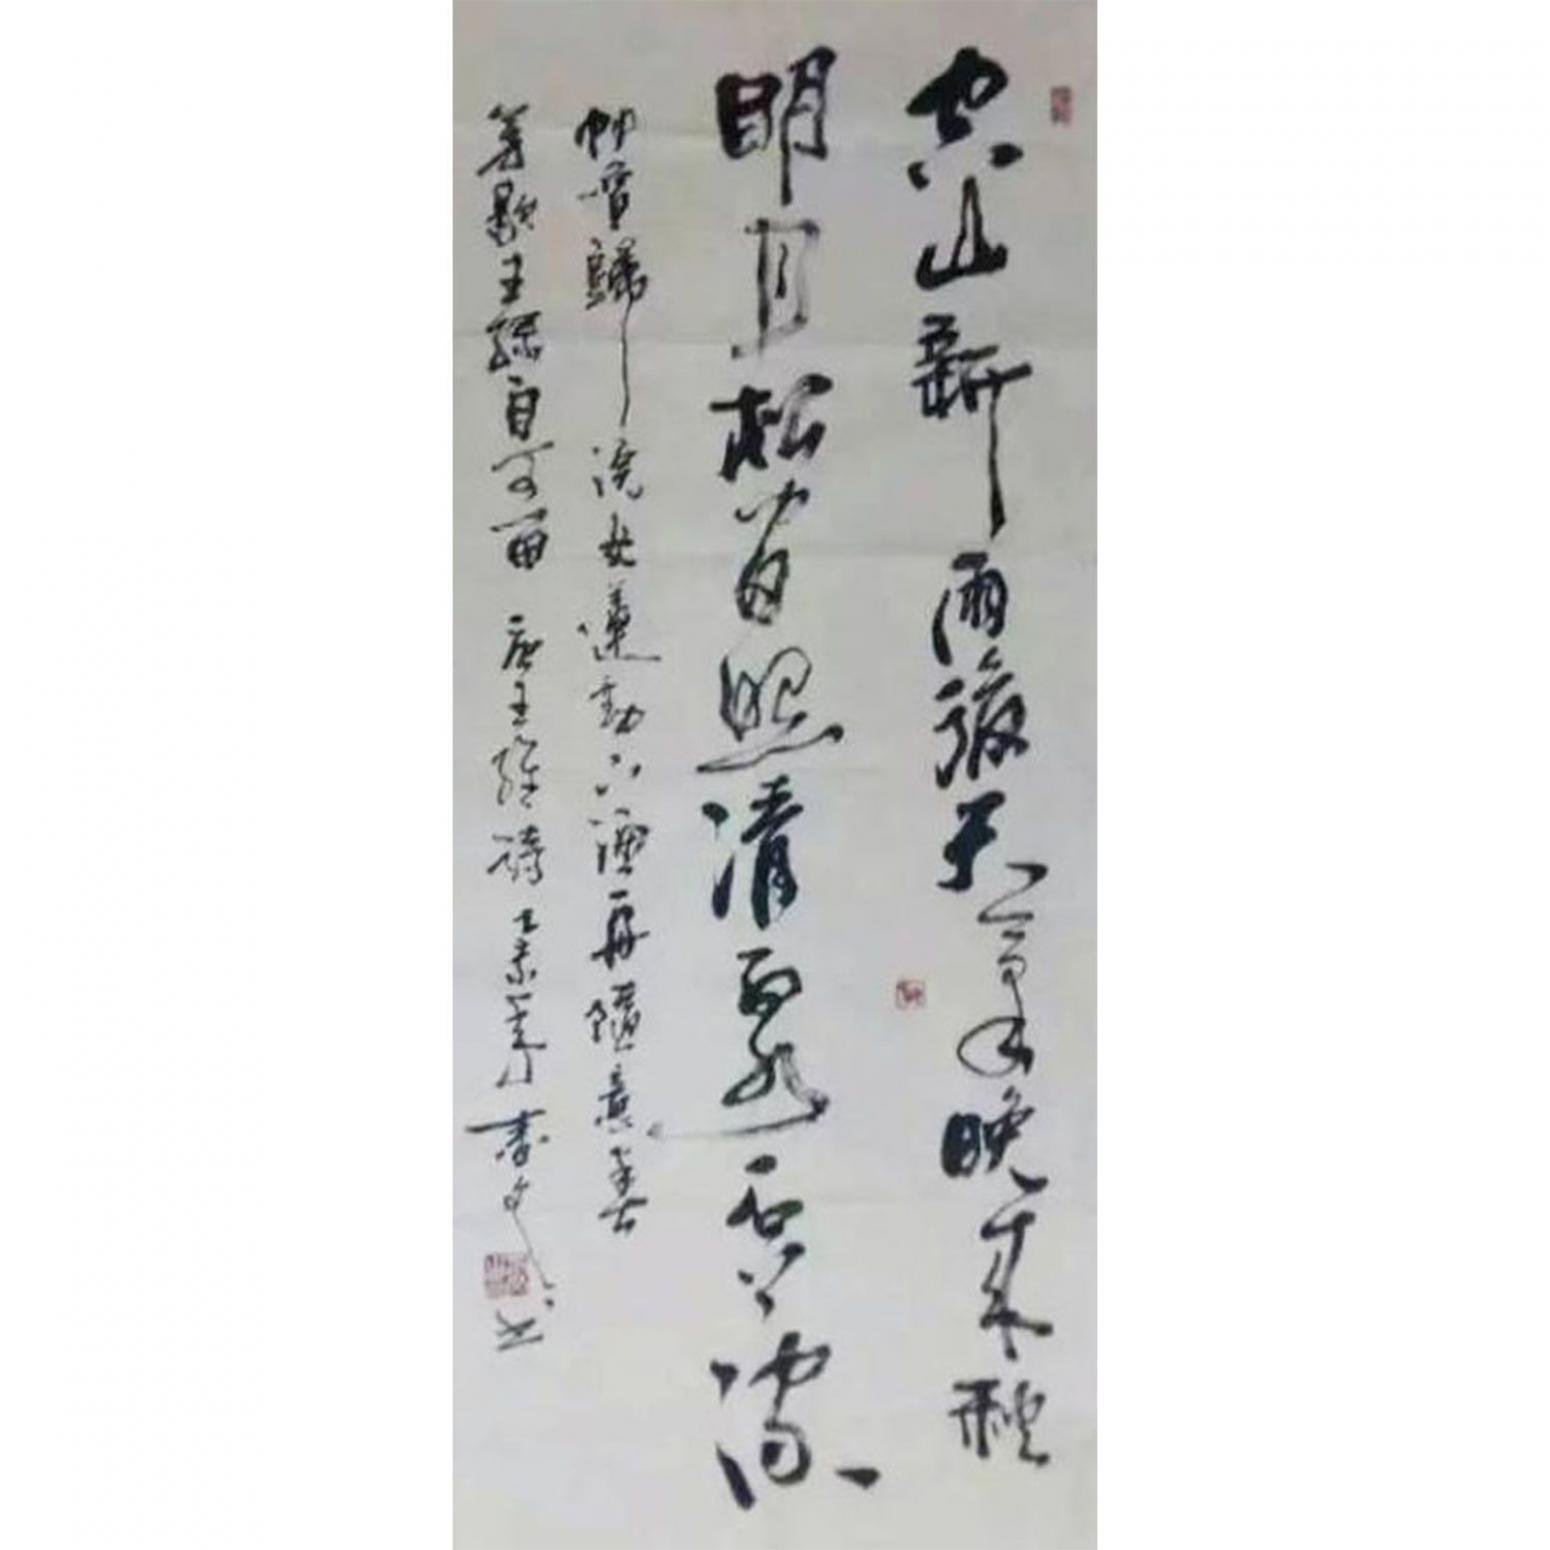 空山新雨後天氣晚來秋
明月松間照清泉石上流
竹喧歸浣女蓮動下漁舟隨意春
芳歇王孫自可留 唐王維詩 書